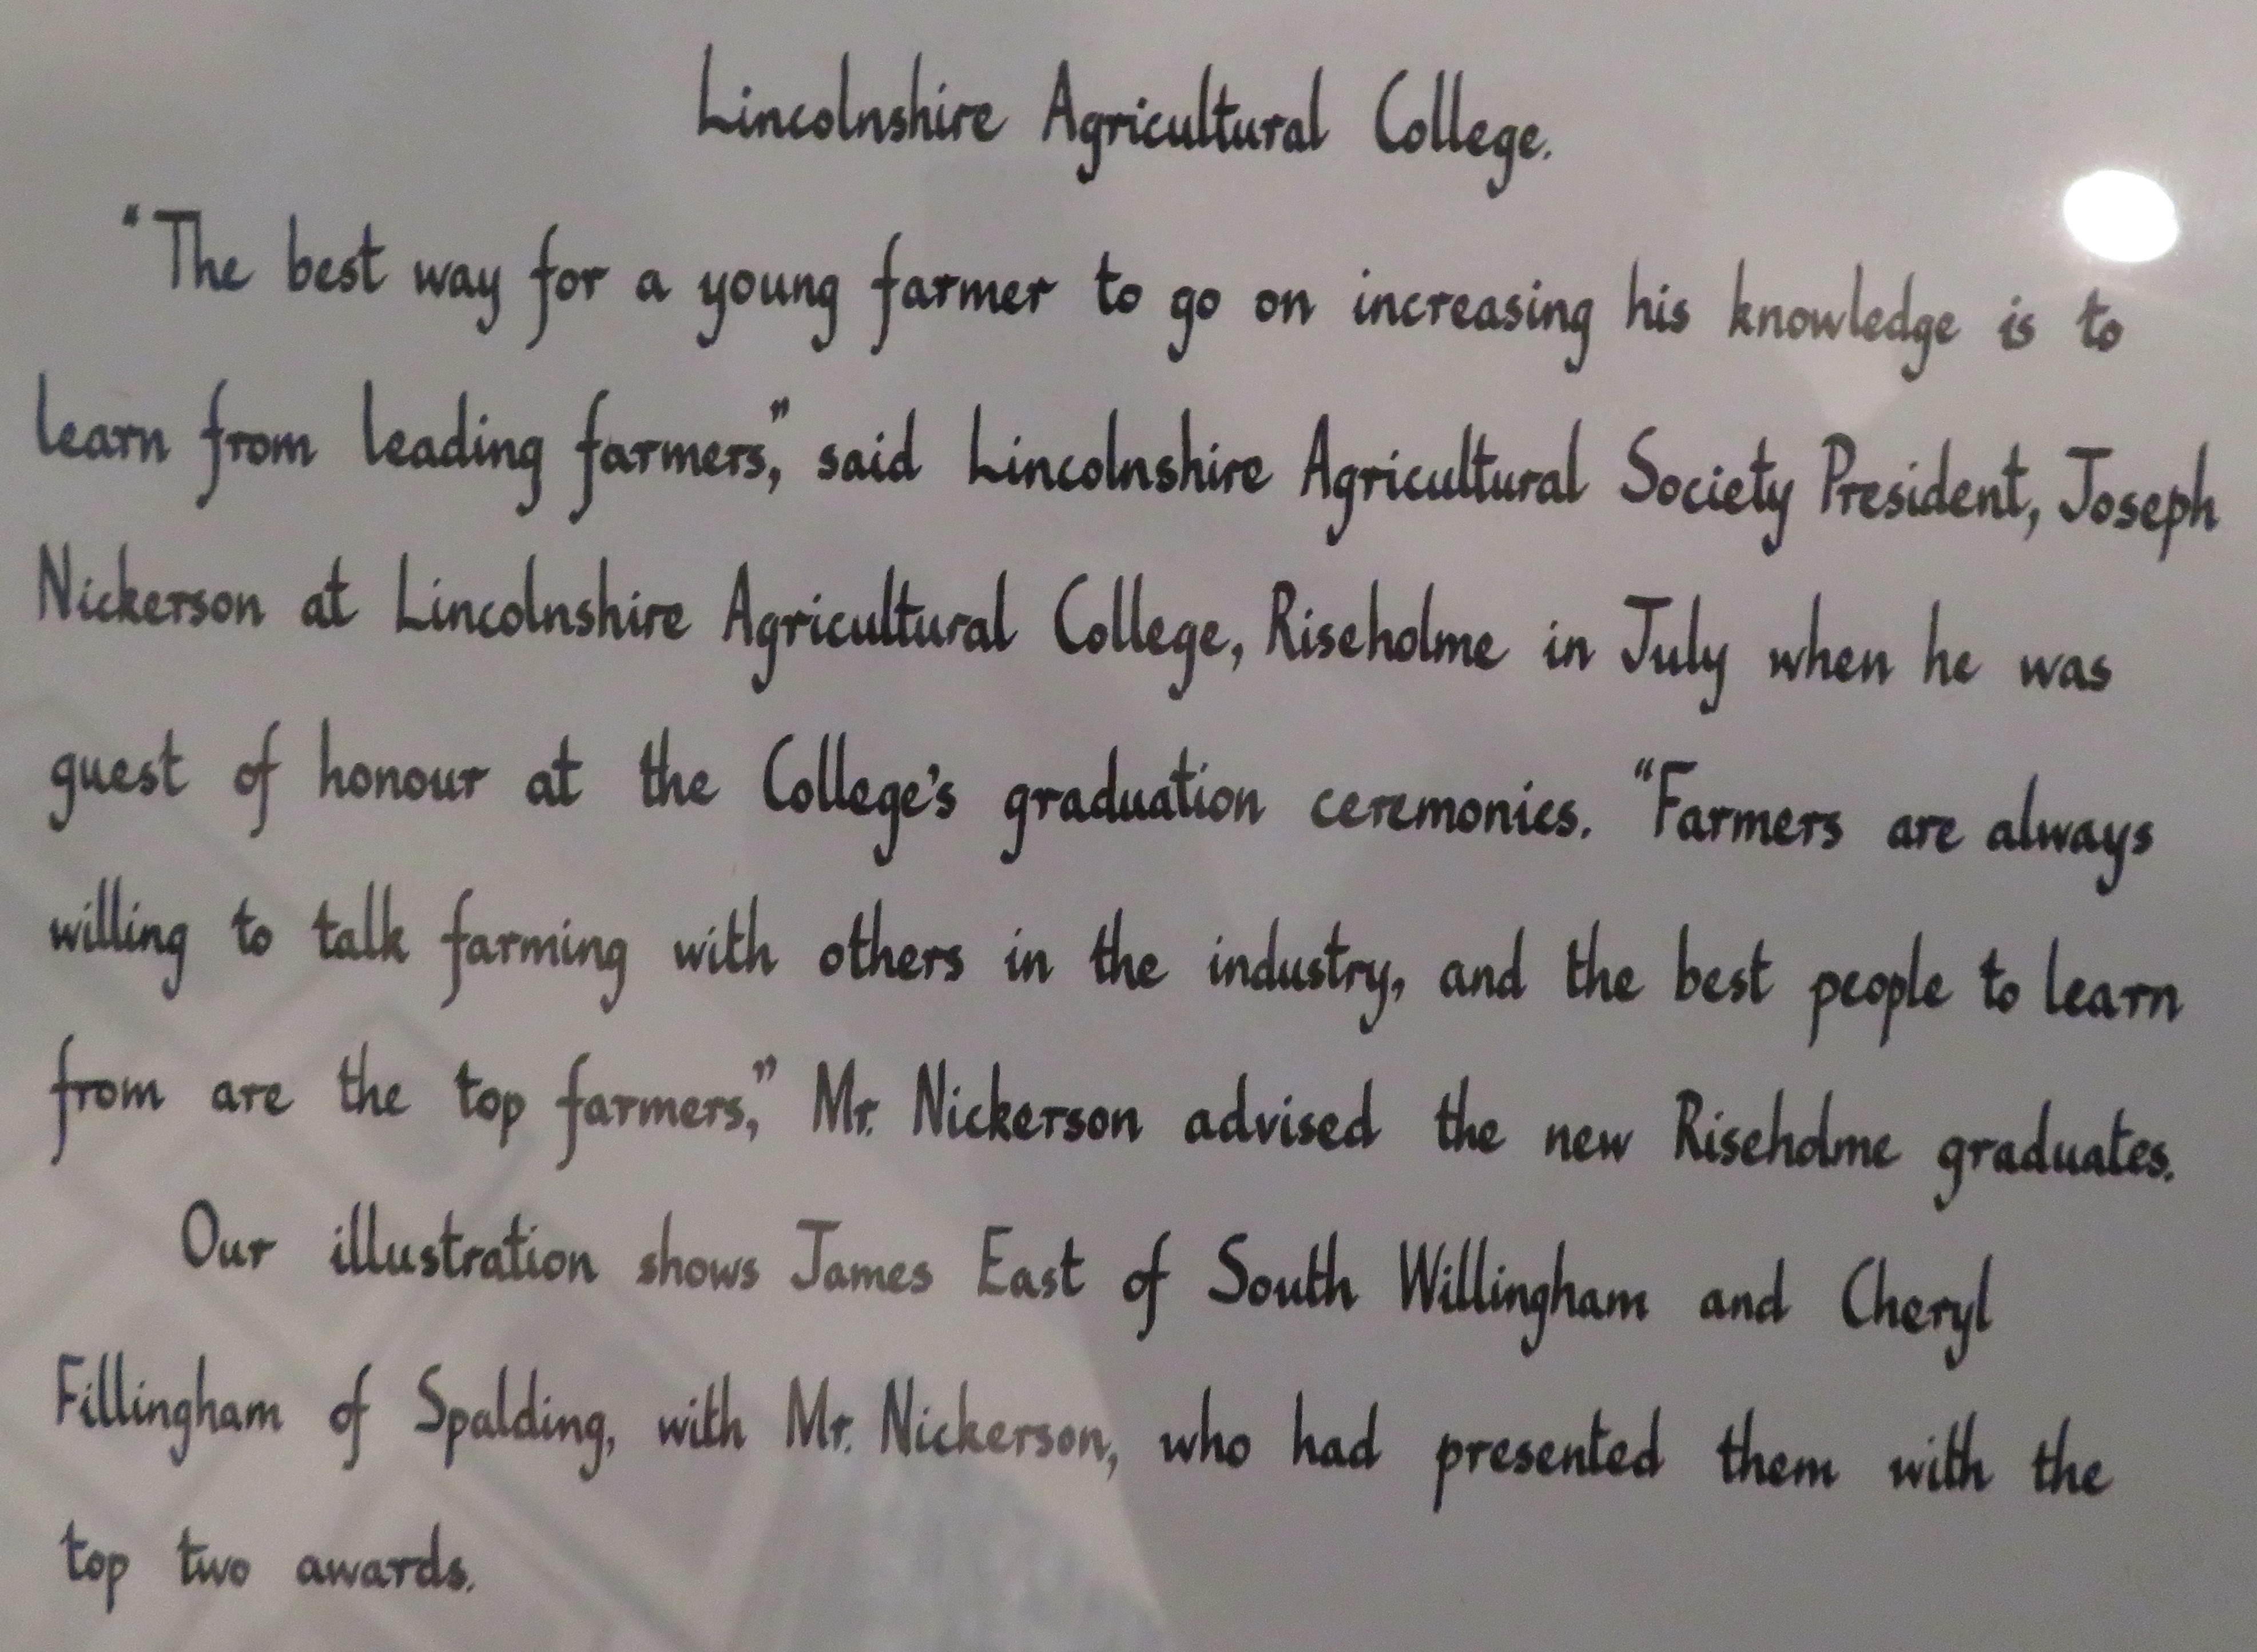 Lincolnshire Agricultural College.
“The best way for a young farmer to go on increasing his knowledge is to
learn from leading farmers,” said Lincolnshire Agricultural Society President, Joseph
Nickerson at Lincolnshire Agricultural College, Riseholme in July when he was
guest of honour at the College’s graduation ceremonies. “Farmers are always
willing to talk farming with others in the industry, and the best people to learn
from are the top farmers,” Mr. Nickerson advised the new Riseholme graduates.
Our illustration shows James East of South Willingham and Cheryl
Fillingham of Spalding, with Mr. Nickerson, who had presented them with the
top two awards.